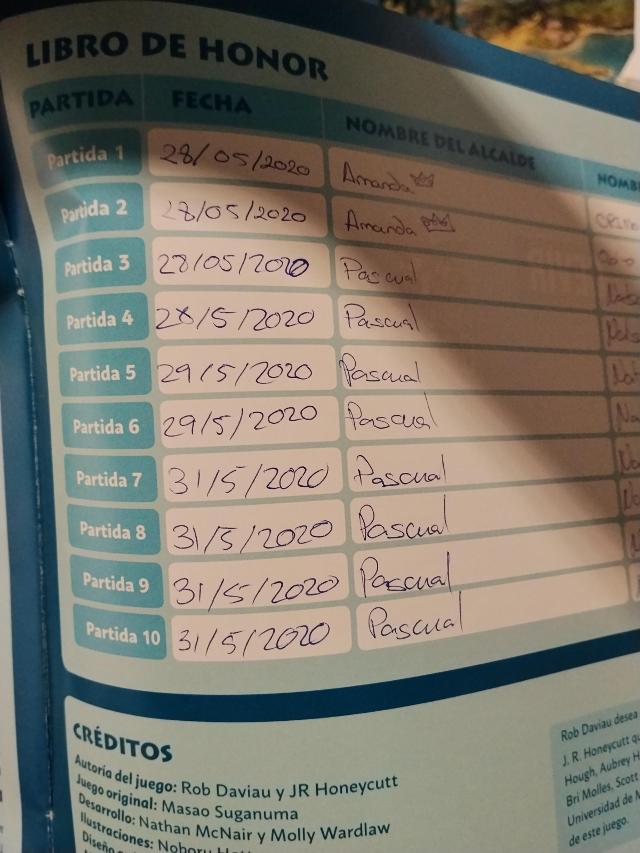 LIBRO DE HONOR
PARTIDA FECHA NOMBRE DEL ALCALDE
Partida 1 28/05/2020 Amanda
Partida 2 28/05/2020 Amanda
Partida 3 28/05/2020 Pascual
Partida 4 28/5/2020 Pascual
Partida 5 29/5/2020 Pascual
Partida 6 29/5/2020 Pascual
Partida 7 31/5/2020 Pascual
Partida 8 31/5/2020 Pascual
Partida 9 31/5/2020 Pascual
Partida 10 31/5/2020 Pascual
CRÉDITOS
Autoría del juego: Rob Daviau y JR Honeycutt
Juego original: Masao Suganuma
Desarrollo: Nathan McNair y Molly Wardlaw
Ilustraciones: Noboru
Rob Daviau desea
J. R. Honeycutt
Hough, Aubrey
Bri Molles, Scott
Universidad de
de este juego.